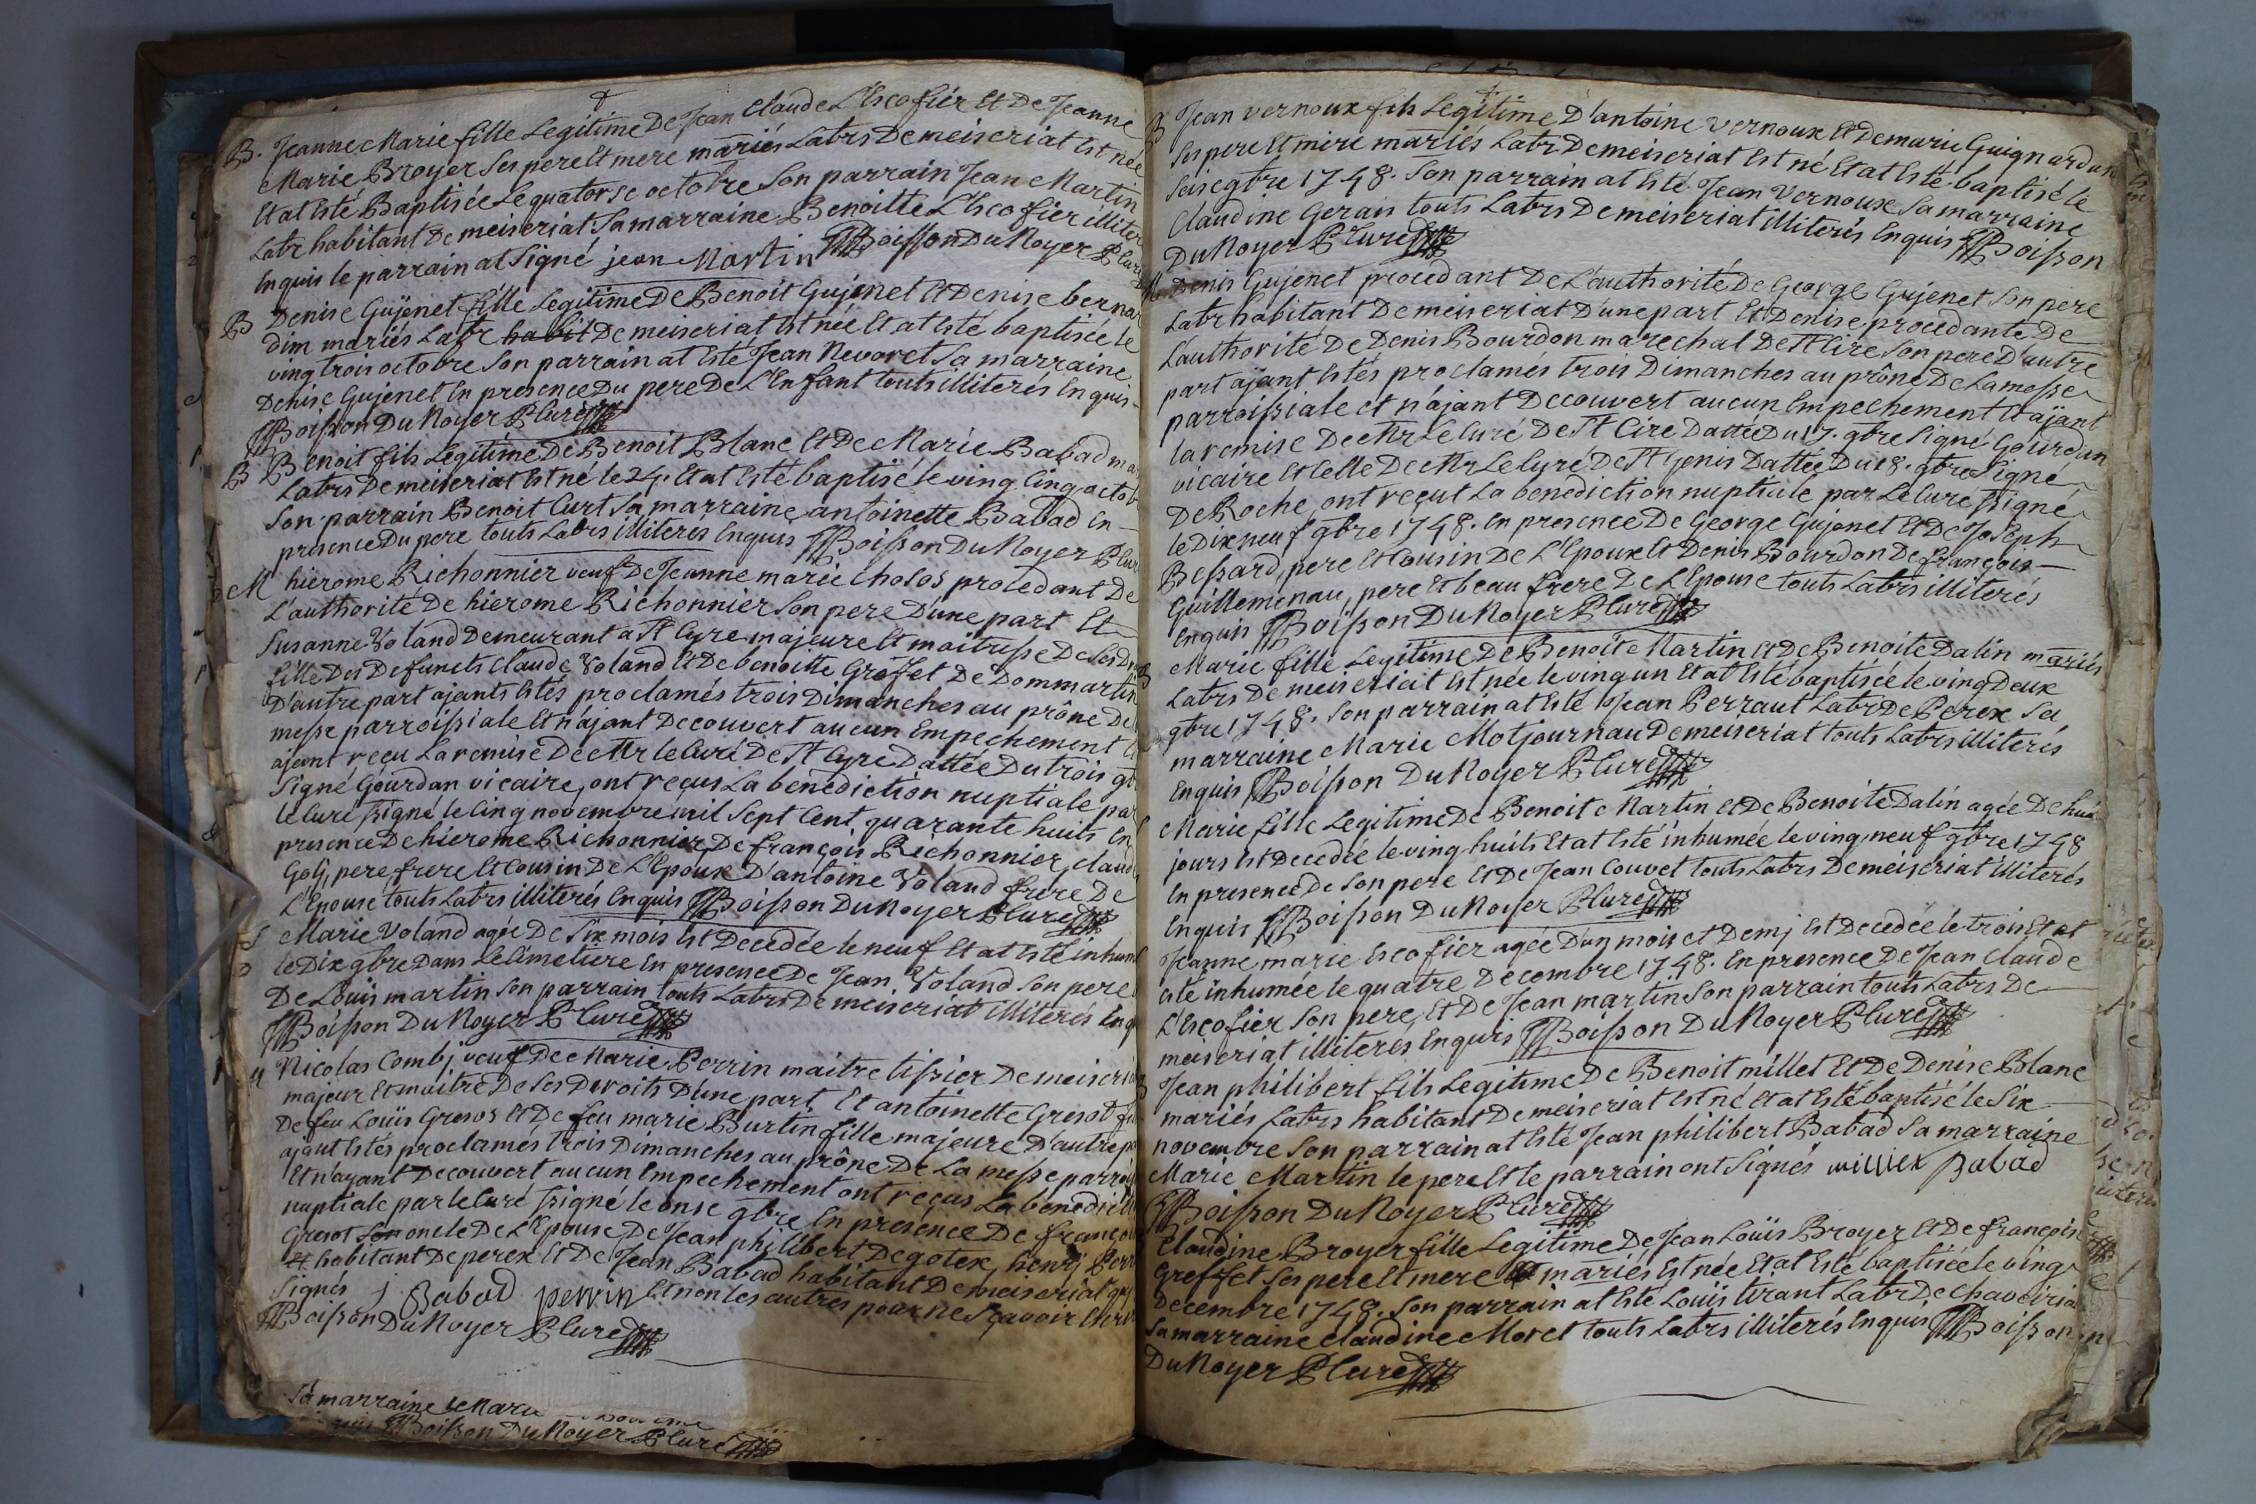 B. Jeanne Marie fille Legitime De Jean Claude L'Escofier Et De Jeanne
Marie Broyer Ses pere Et mere mariés Labrs De meiseriat Est née
Et at Esté Baptisée Le quatorse octobre Son parrain Jean Martin
Labr habitant De meiseriat Sa marraine Benoitte L'Escofier illiter
Enquis le parrain at Signé jean Martin Boisson Du Noyer P Curé
B Denise Gujenet fille Legitime De Benoit Gujenet Et Denise bernar
din mariés Labr habit De meiseriat Est née Et at Esté baptisée le
ving trois octobre Son parrain at Esté Jean Nevoret Sa marraine
Denise Gujenet En presence Du pere De L'Enfant touts illiterés Enquis
Boisson Du Noyer P Curé
B Benoit fils Legitime De Benoit Blanc Et De Marie Babad ma
Labrs De meiseriat Est né le 24. Et at Esté baptisé le ving Cinq octob
Son parrain Benoit Curt Sa marraine antoinette Babad En
presence Du pere touts Labrs illiterés Enquis Boisson Du Noyer P Cur
M hierome Richonnier veuf De Jeanne marie Cholos procedant De
L'authorité De hierome Richonnier Son pere D'une part Et
Susanne Voland Demeurant a St Cyre majeure Et maitresse De Ses D
fille Des Defuncts Claude Voland Et De benoitte Groffet De Dommartin
D'autre part ajants Estés proclamés trois Dimanches au prône De
messe parroissiale Et n'ajant Decouvert aucun Empechement Et
ajant reçu La remise De Mr le Curé De St Cyre Dattée Du trois gb
Signé Gourdan vicaire, ont reçus La benediction nuptiale par
le Curé ssigné le Cinq novembre mil Sept Cent quarante huits En
presence De hierome Richonnier, De françois Richonnier, Claude
Golj, pere frere Et Cousin De L'Epoux D'antoine Voland frere De
L'Epouse touts Labrs illiterés Enquis Boisson Du Noyer P Curé
S Marie Voland agée De Six mois Est Decedée le neuf Et at Esté inhum
le Dix gbre Dans Le Cimetiere En presence De Jean Voland Son pere
De Louis martin Son parrain touts Labrs De meiseriat illiterés Enq
Boisson Du Noyer P Curé
Nicolas Combj veuf De Marie Perrin maitre tissier De meiseria
majeur Et maitre De Ses Droits D'une part Et antoinette Gresot fi
De feu Louis Gresos Et De feu marie Burtin fille majeure D'autre pa
ajant Estés proclamés trois Dimanches au prône De La messe parroi
Et n'ayant Decouvert aucun Empechement ont reçus La benedicti
nuptiale par le Curé ssigné le onse gbre En presence De françois
Gresot Son oncle De L'Epouse De Jean philibert Degotex, henrj Perr
Et habitant De perex Et De Jean Babad habitant De meiseriat qui
Signés j. Babad perrin Et non les autres pour ne Sçavoir Ecrir
Boisson Du Noyer P Curé
Sa marraine Marie
Boisson Du Noyer P Curé
B Jean vernoux fils Legitime D'antoine vernoux Et De marie Guignardan
Ses pere Et mere mariés Labr De meiseriat Est né Et at Esté baptisé le
Seise gbre 1748. Son parrain at Esté Jean Vernoux Sa marraine
Claudine Gerais touts Labrs De meiseriat illiterés Enquis Boisson
Du Noyer P Curé
M Denis Gujenet procedant De L'authorité De George Gujenet Son pere
Labr habitant De meiseriat D'une part Et Denise procedante De
L'authorité De Denis Bourdon marechal De St Cire Son pere D'autre
part aÿant Estés proclamés trois Dimanches au prône De La messe
parroissiale et n'ájant Decouvert aucun Empechement Et aÿant
la remise De Mr Le Curé De St Cire Dattée Du 17. gbre Signé Gourdan
vicaire Et Celle De Mr Le Curé De St Genis Dattée Du 18. gbre Signé
De Roche, ont reçut La benediction nuptiale par Le Curé ssigné
le Dix neuf gbre 1748. En presence De George Gujenet Et De Joseph
Bessard, pere Et Cousin De L'Epoux Et Denis Bourdon De françois
Guillemenau, pere Et beau frere De L'Epouse touts Labrs illiterés
Enquis Boisson Du Noyer P Curé
B Marie fille Legitime De Benoit Martin Et De Benoite Dalin mariés
Labrs De meiseriat Est née le ving un Et at Esté baptisée le ving Deux
gbre 1748. Son parrain at Esté Jean Perraut Labr De Perex Sa
marraine Marie Motjournau De meiseriat touts Labrs illiterés
Enquis Boisson Du Noyer P Curé
Marie fille Legitime De Benoit Martin Et De Benoite Dalin agée De hui
jours Est Decedée le ving huits Et at Esté inhumée le ving neuf gbre 1748
En presence De Son pere Et De Jean Couvet touts Labrs De meiseriat illiterés
Enquis Boisson Du Noyer P Curé
Jeanne marie Escofier agée D'un mois et Demj Est Decedée le trois Et at
Esté inhumée le quatre Decembre 1748. En presence De Jean Claude
L'Escofier Son pere, Et De Jean martin Son parrain touts Labrs De
meiseriat illiterés Enquis Boisson Du Noyer P Curé
B Jean philibert fils Legitime De Benoit millet Et De Denise Blanc
mariés Labrs habitant De meiseriat Est né Et at Esté baptisé le Six
novembre Son parrain at Esté Jean philibert Babad Sa marraine
Marie Martin le pere Et le parrain ont Signés Babad
Boisson Du Noyer P Curé
Claudine Broyer fille Legitime De Jean Louis Broyer Et De françoise
Greffet Ses pere Et mere mariés Est née Et at Esté baptisée le ving
Decembre 1748. Son parrain at Esté Louis tirant Labr De Chaveiria
Sa marraine Claudine Moret touts Labrs illiterés Enquis Boisson
Du Noyer P Curé